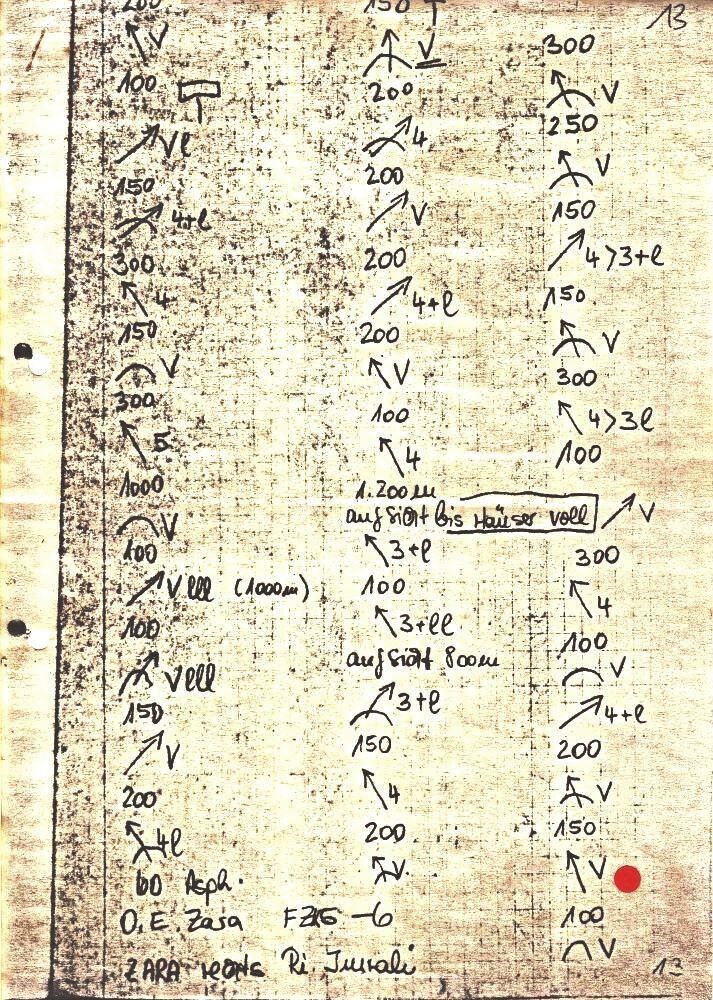 13
200
V
100
Vl
150
4+l
300
4
150
V
300
5
1000
V
100
Vlll (1000m)
100
Vlll
150
V
200
4l
60 Asph.
O.E. Zara
-6
ZARA rechts Ri.
150
V
200
4
200
V
200
4+l
200
V
100
4
1.200m
auf Sicht bis Häuser voll
3+l
100
3+ll
auf Sicht 800m
3+l
150
4
200
V
300
V
250
V
150
4>3+l
150
V
300
4>3l
100
V
300
4
100
V
4+l
200
V
150
V
100
V
13